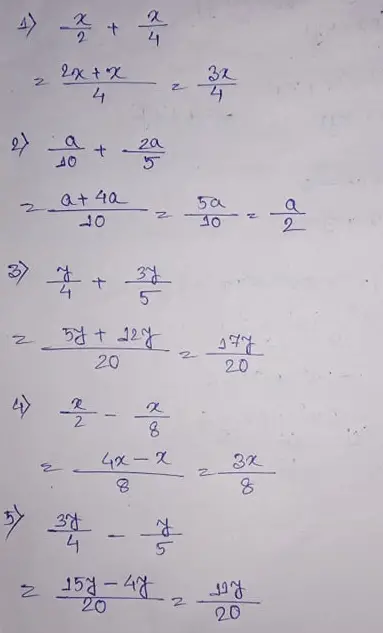 1) x/2 + x/4
= (2x + x)/4 = 3x/4
2) a/10 + 2a/5
= (a + 4a)/10 = 5a/10 = a/2
3) y/4 + 3y/5
= (5y + 12y)/20 = 17y/20
4) x/2 - x/8
= (4x - x)/8 = 3x/8
5) 3y/4 - y/5
= (15y - 4y)/20 = 11y/20